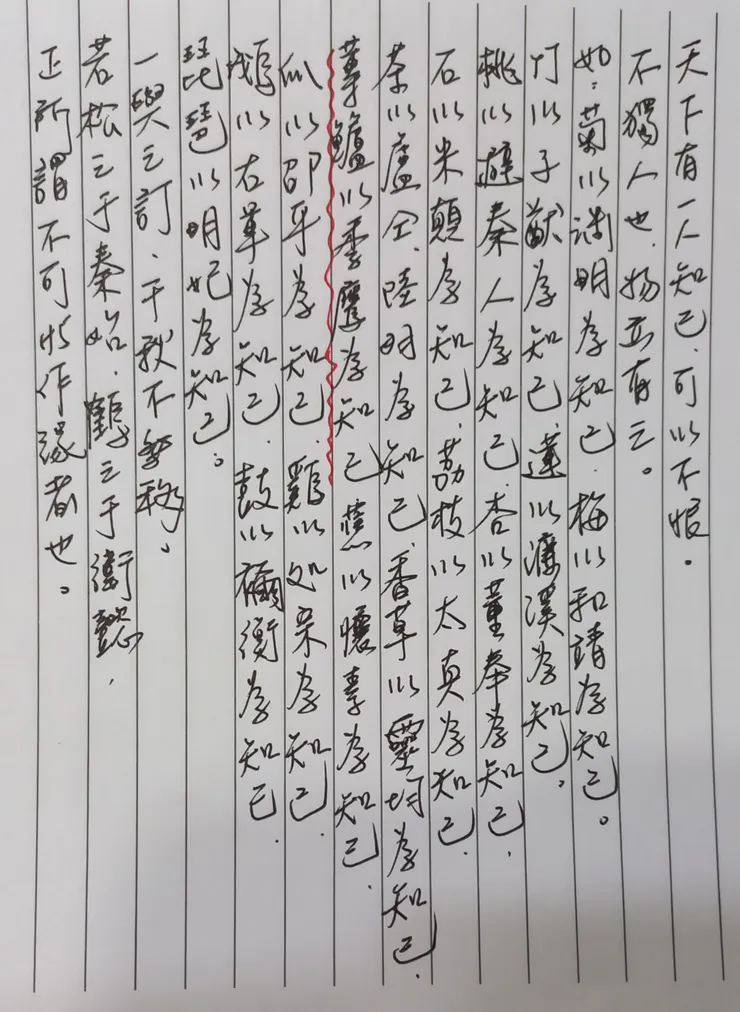 天下有一人知己、可以不恨。
不獨人也、物亦有之。
如：菊以渊明为知己、梅以和靖为知己。
竹以子猷为知己、蓮以濂溪为知己。
桃以避秦人为知己、杏以董奉为知己、
石以米顛为知己、荔枝以太真为知己、
茶以盧仝、陸羽为知己、香草以靈均为知己、
莼鱸以季鷹为知己、蕉以懷素为知己、
瓜以邵平为知己、雞以处宗为知己、
鵝以右軍为知己、鼓以禰衡为知己、
琵琶以明妃为知己。
一與之訂、千秋不移。
若松之于秦始、鶴之于衛懿、
正所謂不可与作缘者也。